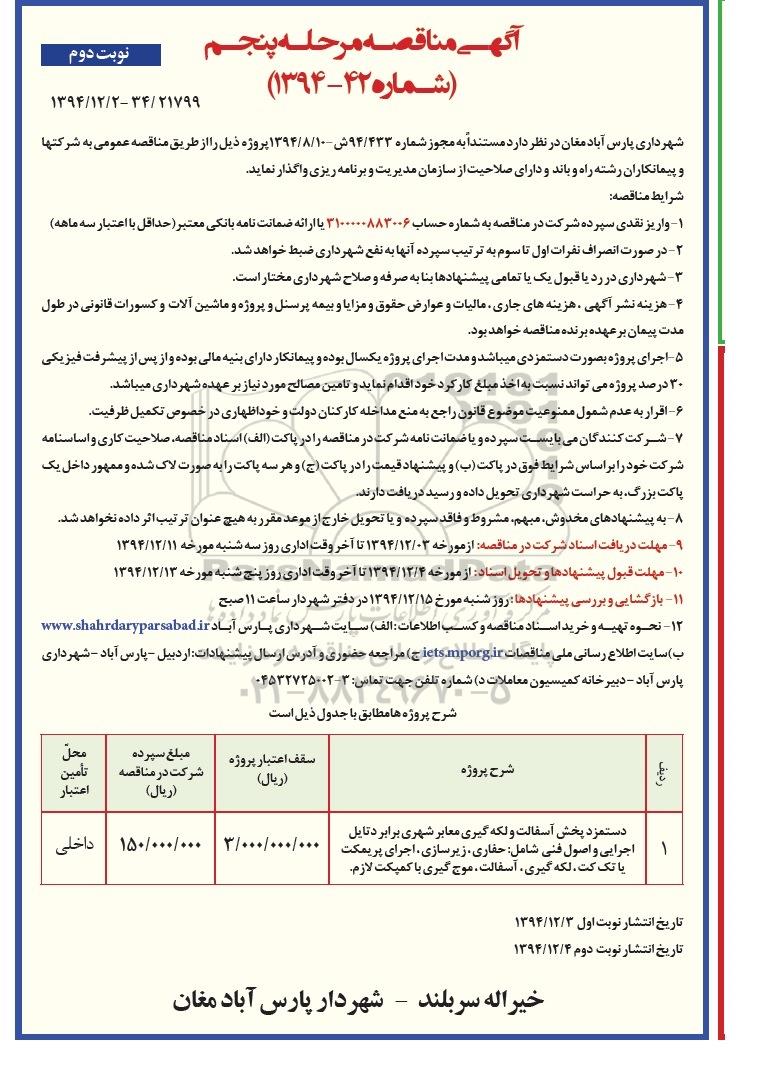 آگهی مناقصه مرحله پنجم
(شماره ۴۲-۱۳۹۴)
نوبت دوم
۱۳۹۴/۱۲/۲-۳۴/۲۱۷۹۹
شهرداری پارس آباد مغان در نظر دارد مستنداً به مجوز شماره ۹۴/۴۳۳ش-۱۳۹۴/۸/۱۰پروژه ذیل را از طریق مناقصه عمومی به شرکتها
و پیمانکاران رشته راه و باند و دارای صلاحیت از سازمان مدیریت و برنامه ریزی واگذار نماید.
شرایط مناقصه:
۱-واریز نقدی سپرده شرکت در مناقصه به شماره حساب ۳۱۰۰۰۰۰۸۸۳۰۰۶ یا ارائه ضمانت نامه بانکی معتبر(حداقل با اعتبار سه ماهه)
۲-در صورت انصراف نفرات اول تا سوم به ترتیب سپرده آنها به نفع شهرداری ضبط خواهد شد.
۳-شهرداری در رد یا قبول یک یا تمامی پیشنهادها بنا به صرفه و صلاح شهرداری مختار است.
۴-هزینه نشر آگهی ، هزینه های جاری ، مالیات و عوارض حقوق و مزایا و بیمه پرسنل و پروژه و ماشین آلات و کسورات قانونی در طول
مدت پیمان بر عهده برنده مناقصه خواهد بود.
۵-اجرای پروژه بصورت دستمزدی میباشد و مدت اجرای پروژه یکسال بوده و پیمانکار دارای بنیه مالی بوده و از پس از پیشرفت فیزیکی
۳۰ درصد پروژه می تواند نسبت به اخذ مبلغ کارکرد خود اقدام نماید و تامین مصالح مورد نیاز بر عهده شهرداری میباشد.
۶-اقرار به عدم شمول ممنوعیت موضوع قانون راجع به منع مداخله کارکنان دولت و خوداظهاری در خصوص تکمیل ظرفیت.
۷-شرکت کنندگان می بایست سپرده و یا ضمانت نامه شرکت در مناقصه را در پاکت (الف) اسناد مناقصه، صلاحیت کاری و اساسنامه
شرکت خود را بر اساس شرایط فوق در پاکت (ب) و پیشنهاد قیمت را در پاکت (ج) و هر سه پاکت را به صورت لاک شده و ممهور داخل یک
پاکت بزرگ، به حراست شهرداری تحویل داده و رسید دریافت دارند.
۸-به پیشنهادهای مخدوش، مبهم، مشروط و فاقد سپرده و یا تحویل خارج از موعد مقرر به هیچ عنوان ترتیب اثر داده نخواهد شد.
۹-مهلت دریافت اسناد شرکت در مناقصه: از مورخه ۱۳۹۴/۱۲/۰۳ تا آخر وقت اداری روز سه شنبه مورخه ۱۳۹۴/۱۲/۱۱
۱۰-مهلت قبول پیشنهادها و تحویل اسناد: از مورخه ۱۳۹۴/۱۲/۴ تا آخر وقت اداری روز پنج شنبه مورخه ۱۳۹۴/۱۲/۱۳
۱۱- بازگشایی و بررسی پیشنهادها : روز شنبه مورخ ۱۳۹۴/۱۲/۱۵ در دفتر شهردار ساعت ۱۱ صبح
۱۲-نحوه تهیه و خرید اسناد مناقصه و کسب اطلاعات : الف) سایت شهرداری پارس آباد www.shahrdaryparsabad.ir
ب)سایت اطلاع رسانی ملی مناقصات iets.mporg.ir ج) مراجعه حضوری و آدرس ارسال پیشنهادات: اردبیل -پارس آباد -شهرداری
پارس آباد -دبیرخانه کمیسیون معاملات د) شماره تلفن جهت تماس: ۳-۰۴۵۳۲۷۲۵۰۰۲
۰۲۱-۸۸۳۴۹۶۷۰-۵
شرح پروژه ها مطابق با جدول ذیل است
ردیف شرح پروژه سقف اعتبار پروژه (ریال) مبلغ سپرده شرکت در مناقصه (ریال) محلّ تأمین اعتبار
۱ دستمزد پخش آسفالت و لکه گیری معابر شهری برابر دتایل ۳/۰۰۰/۰۰۰/۰۰۰ ۱۵۰/۰۰۰/۰۰۰ داخلی
اجرایی و اصول فنی شامل: حفاری ، زیرسازی ، اجرای پریمکت
یا تک کت ، لکه گیری ، آسفالت ، موج گیری با کمپکت لازم.
تاریخ انتشار نوبت اول ۱۳۹۴/۱۲/۳
تاریخ انتشار نوبت دوم ۱۳۹۴/۱۲/۴
خیراله سربلند - شهردار پارس آباد مغان